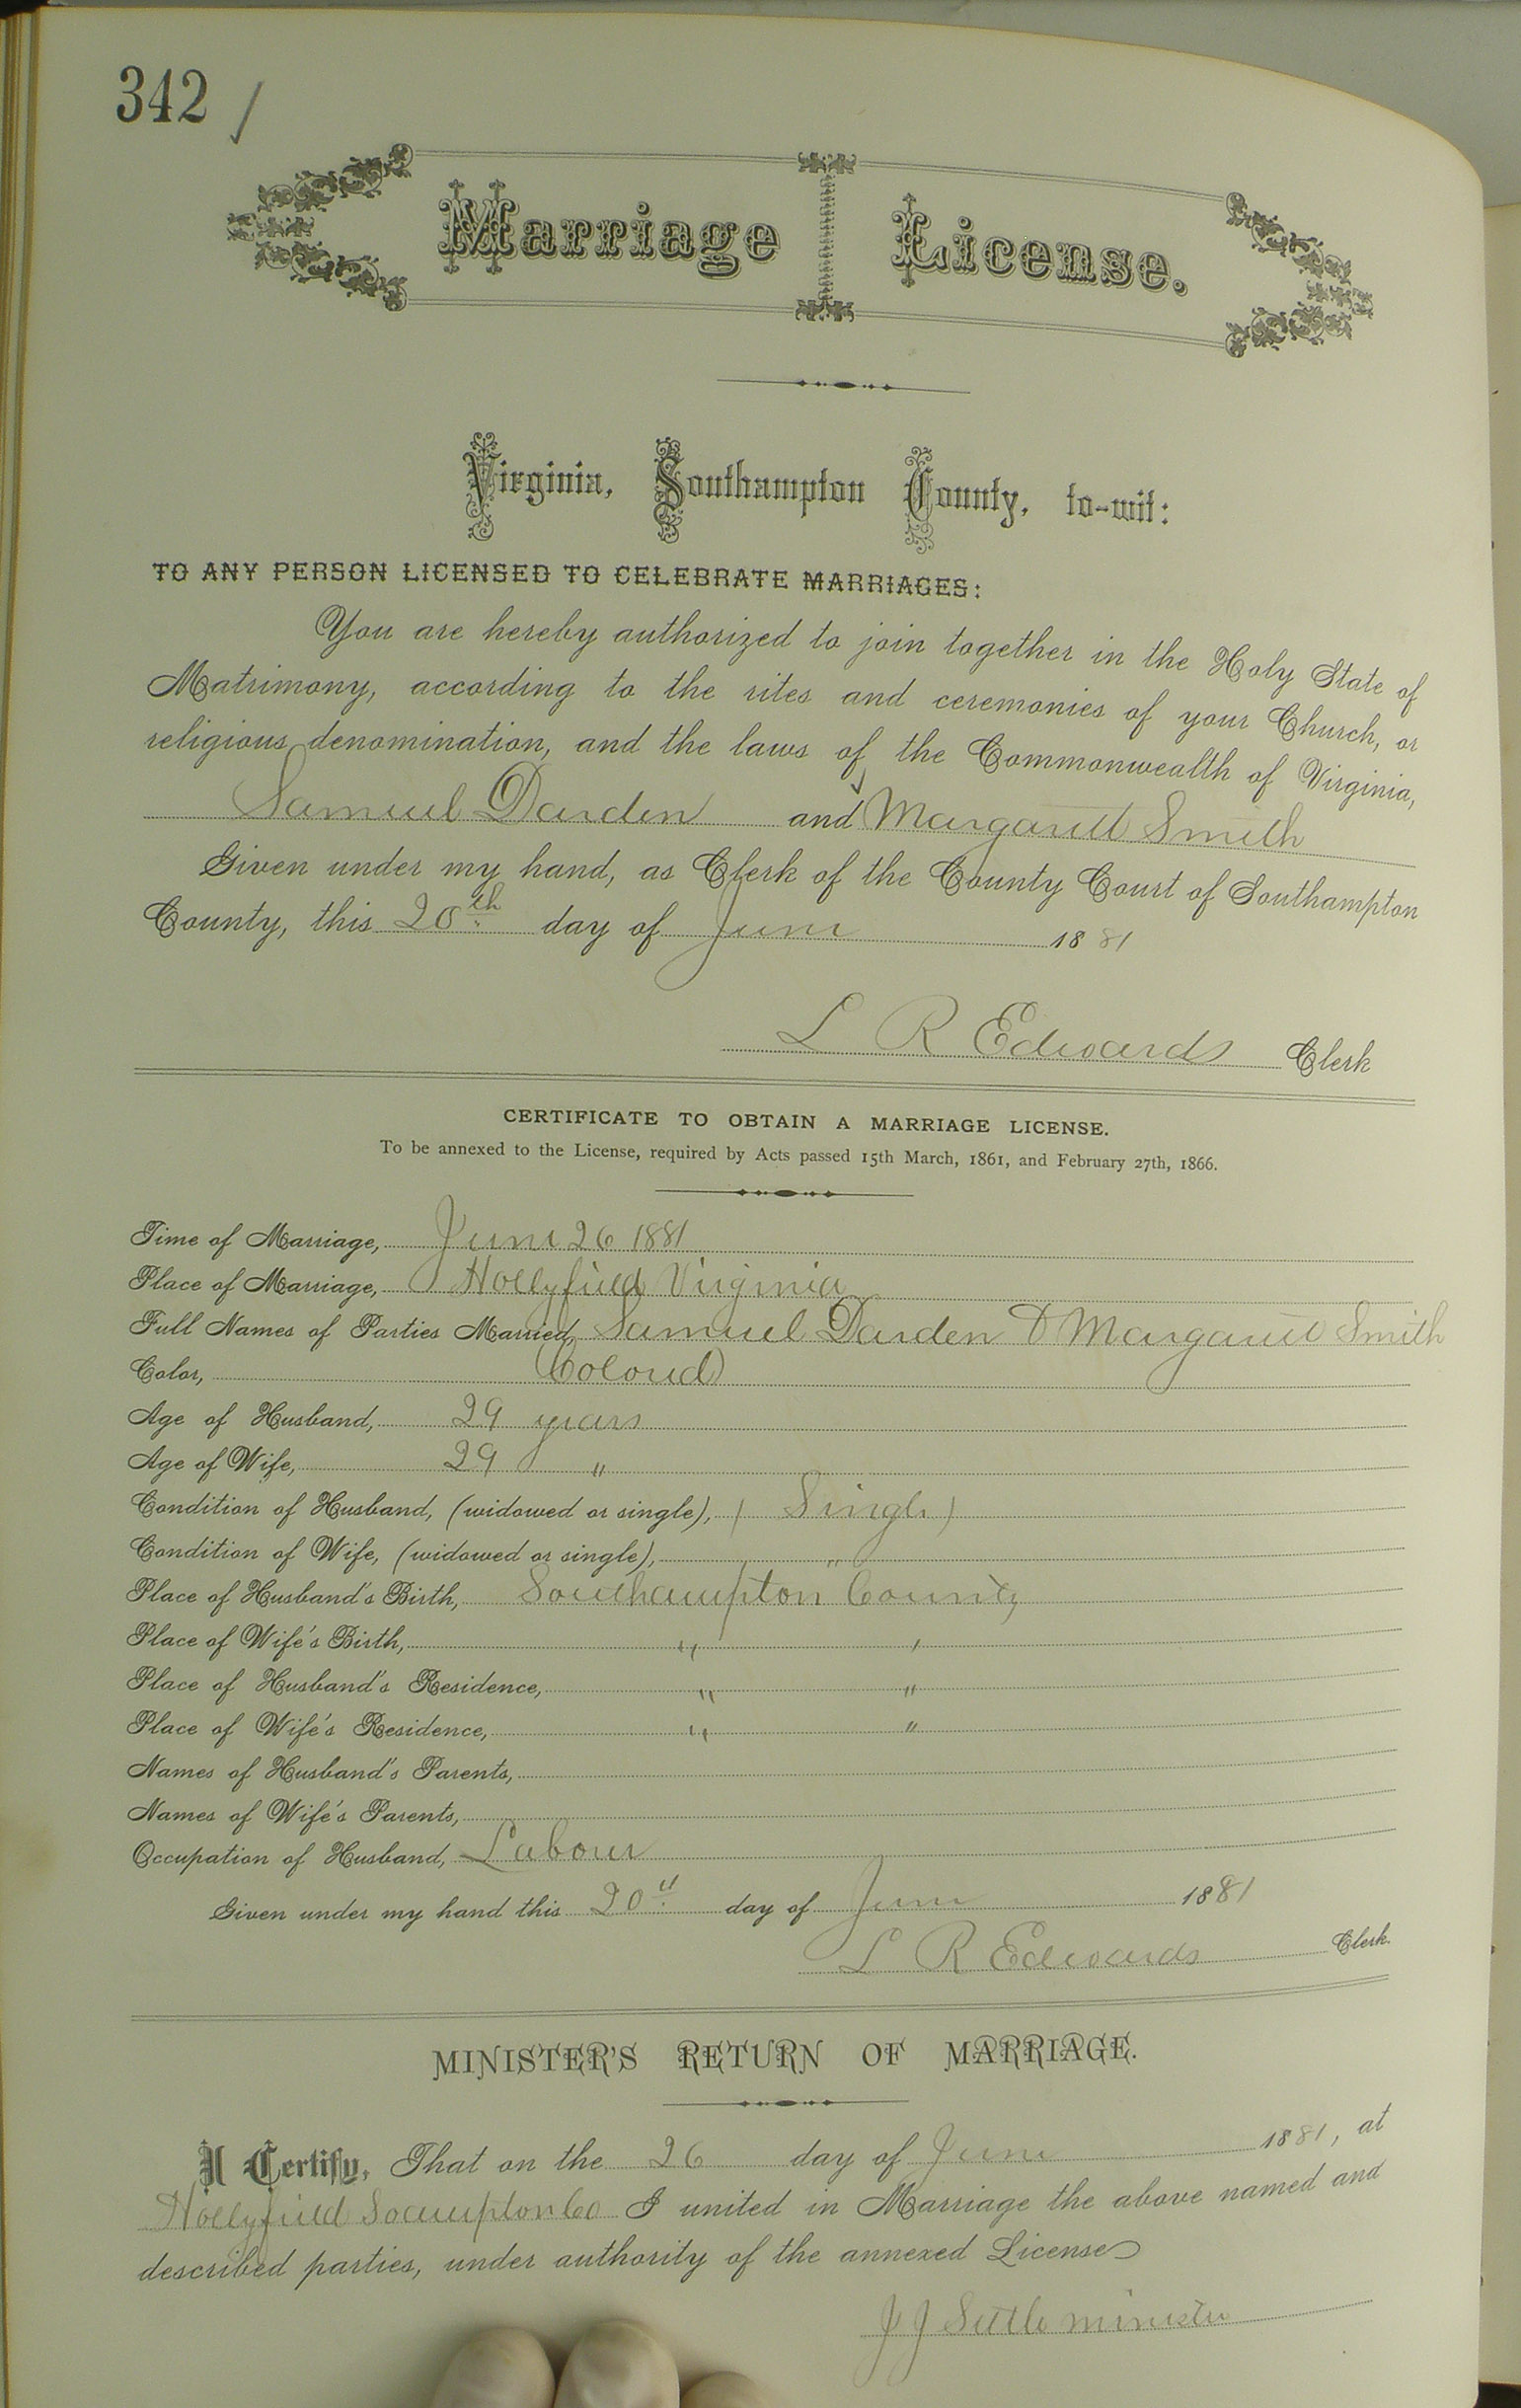 342 /
Marriage License.
Virginia, Southampton County, to-wit:
TO ANY PERSON LICENSED TO CELEBRATE MARRIAGES:
You are hereby authorized to join together in the Holy State of
Matrimony, according to the rites and ceremonies of your Church, or
religious denomination, and the laws of the Commonwealth of Virginia,
Samuel Darden and Margarett Smith
Given under my hand, as Clerk of the County Court of Southampton
County, this 20th day of June 1881
L R Edwards Clerk
CERTIFICATE TO OBTAIN A MARRIAGE LICENSE.
To be annexed to the License, required by Acts passed 15th March, 1861, and February 27th, 1866.
Time of Marriage, June 26 1881
Place of Marriage, Hollyfield Virginia
Full Names of Parties Married, Samuel Darden & Margarett Smith
Color, (Colored)
Age of Husband, 29 years
Age of Wife, 29 "
Condition of Husband, (widowed or single), (Single)
Condition of Wife, (widowed or single), "
Place of Husband's Birth, Southampton County
Place of Wife's Birth, " "
Place of Husband's Residence, " "
Place of Wife's Residence, " "
Names of Husband's Parents,
Names of Wife's Parents,
Occupation of Husband, Labour
Given under my hand this 20th day of June 1881
L R Edwards Clerk.
MINISTER'S RETURN OF MARRIAGE.
I Certify, That on the 26 day of June 1881, at
Hollyfield Soaumpton Co I united in Marriage the above named and
described parties, under authority of the annexed License
J J Settle minister